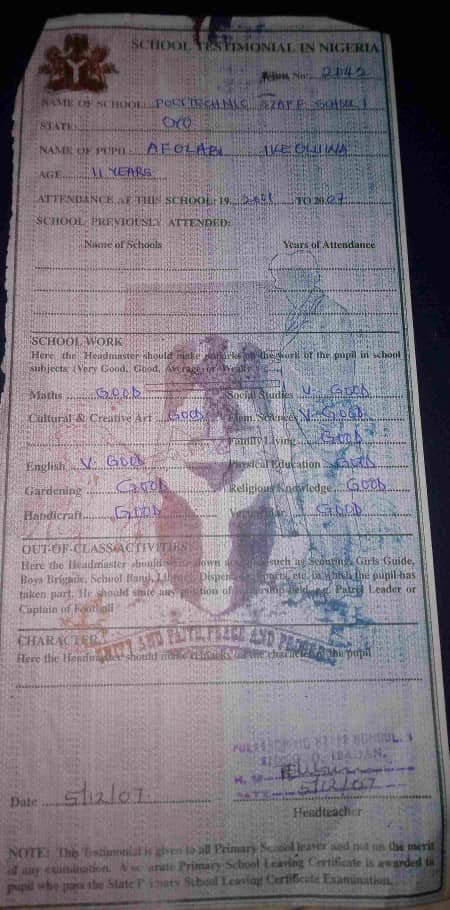 SCHOOL TESTIMONIAL IN NIGERIA
No: 2042
NAME OF SCHOOL: POLYTECHNIC STAFF SCHOOL 1
STATE: OYO
NAME OF PUPIL: AFOLABI
AGE 11 YEARS
ATTENDANCE AT THIS SCHOOL: 19 2001 TO 20 07
SCHOOL PREVIOUSLY ATTENDED:
Name of Schools Years of Attendance
SCHOOL WORK
Here the Headmaster should make remarks on the work of the pupil in school
subjects (Very Good, Good, Average or Weak)
Maths GOOD Social Studies V. GOOD
Cultural & Creative Art GOOD Elem. Science V. GOOD
Family Living GOOD
English V. GOOD Physical Education GOOD
Gardening GOOD Religious Knowledge GOOD
Handicraft GOOD GOOD
OUT-OF-CLASS ACTIVITIES
Here the Headmaster should down such as Scouting, Girls Guide,
Boys Brigade, School Band, Sports, etc. in which the pupil has
taken part. He should state any position of held e.g. Patrol Leader or
Captain of Football
UNITY AND FAITH, PEACE AND PROGRESS
CHARACTER
Here the Headmaster should make remarks on the character of the pupil
POLYTECHNIC STAFF SCHOOL 1
IBADAN.
5/12/07
Date 5/12/07
Headteacher
NOTE: This Testimonial is given to all Primary School leaver and not on the merit
of any examination. A separate Primary School Leaving Certificate is awarded to
pupil who pass the State Primary School Leaving Certificate Examination.